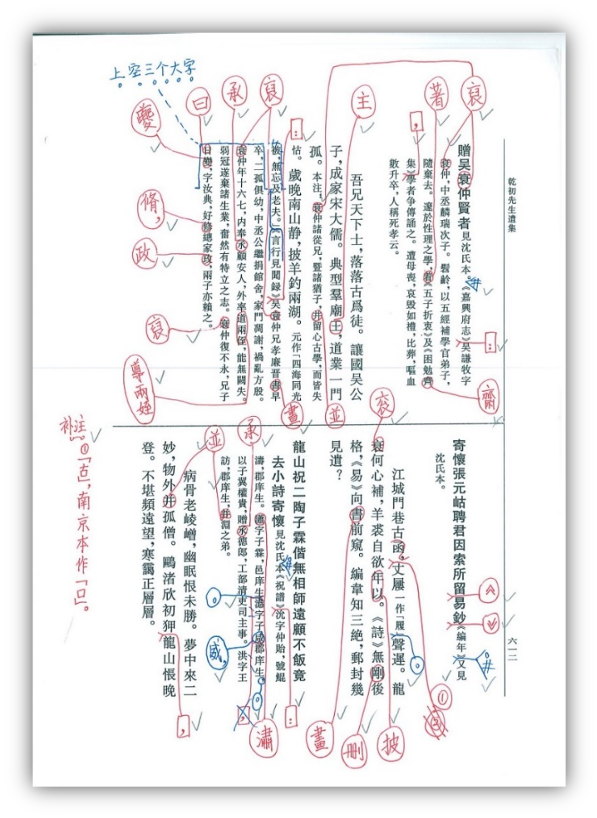 乾初先生遺集
六一二
贈吴裒仲賢者 見沈氏本。《嘉興府志》吴謙牧字
裒仲,中丞麟瑞次子。髫齡,以五經補學官弟子,
隨棄去。邃於性理之學,着《五子折衷》及《困勉齊
集》,學者爭傳誦之。遭母喪,哀毁如禮,比葬,嘔血
數升卒,人稱死孝云。
吾兄天下士,落落古爲徒。讓國吴公
子,成家宋大儒。典型羣廟王,道業一門
孤。本注,裒仲諸從兄,暨諸猶子,並留心古學,而皆失
怙。歲晚南山静,披羊釣兩湖。元作「四海同光
被,無忘及老夫。」《言行見聞録》吴裒仲兄孝廉晉書早
卒,二孤俱幼,中丞公繼捐館舍,家門凋謝,禍亂方殷。
裒仲年十六七,内奉水顧安人,外率道兩,能無闕失。
弱冠遂棄諸生業,奮然有特立之志。裒仲復不永,兄子
日夔,字汝典,好總家政,兩子亦賴之。
寄懷張元岵聘君因索所留易鈔 《編年》又見
沈氏本。
江城門巷古函,丈屨一作「履」聲遲。龍
衰何心補,羊裘自欲年以。《詩》無剛後
格,《易》向書前窺。編韋知三絶,郵封幾
見遺?
龍山祝二陶子霖偕無相師遠顧不飯竟
去小詩寄懷 見沈氏本《祝譜》沈字仲貽,號鯤
濤,郡庠生。字子霖,邑庠生。字子,郡庠生。
以子翼權貴,贈承德郎,工部清吏司主事。洪字王
訪,郡庠生,并淵之弟。
病骨老崚嶒,幽眠恨未勝。夢中來二
妙,物外并孤僧。鷗渚欣初狎龍山悵晚
登。不堪頻遠望,寒靄正層層。
上空三个大字
裒
承
曰
夔
脩,
政
裒
導兩姪
主
著
裒
:
:
齋
衮
並
畫
承
並
補注
①「古」,南京本作「口」。
,
。
威,
瀟
:
畫
刪
披
①
②
。